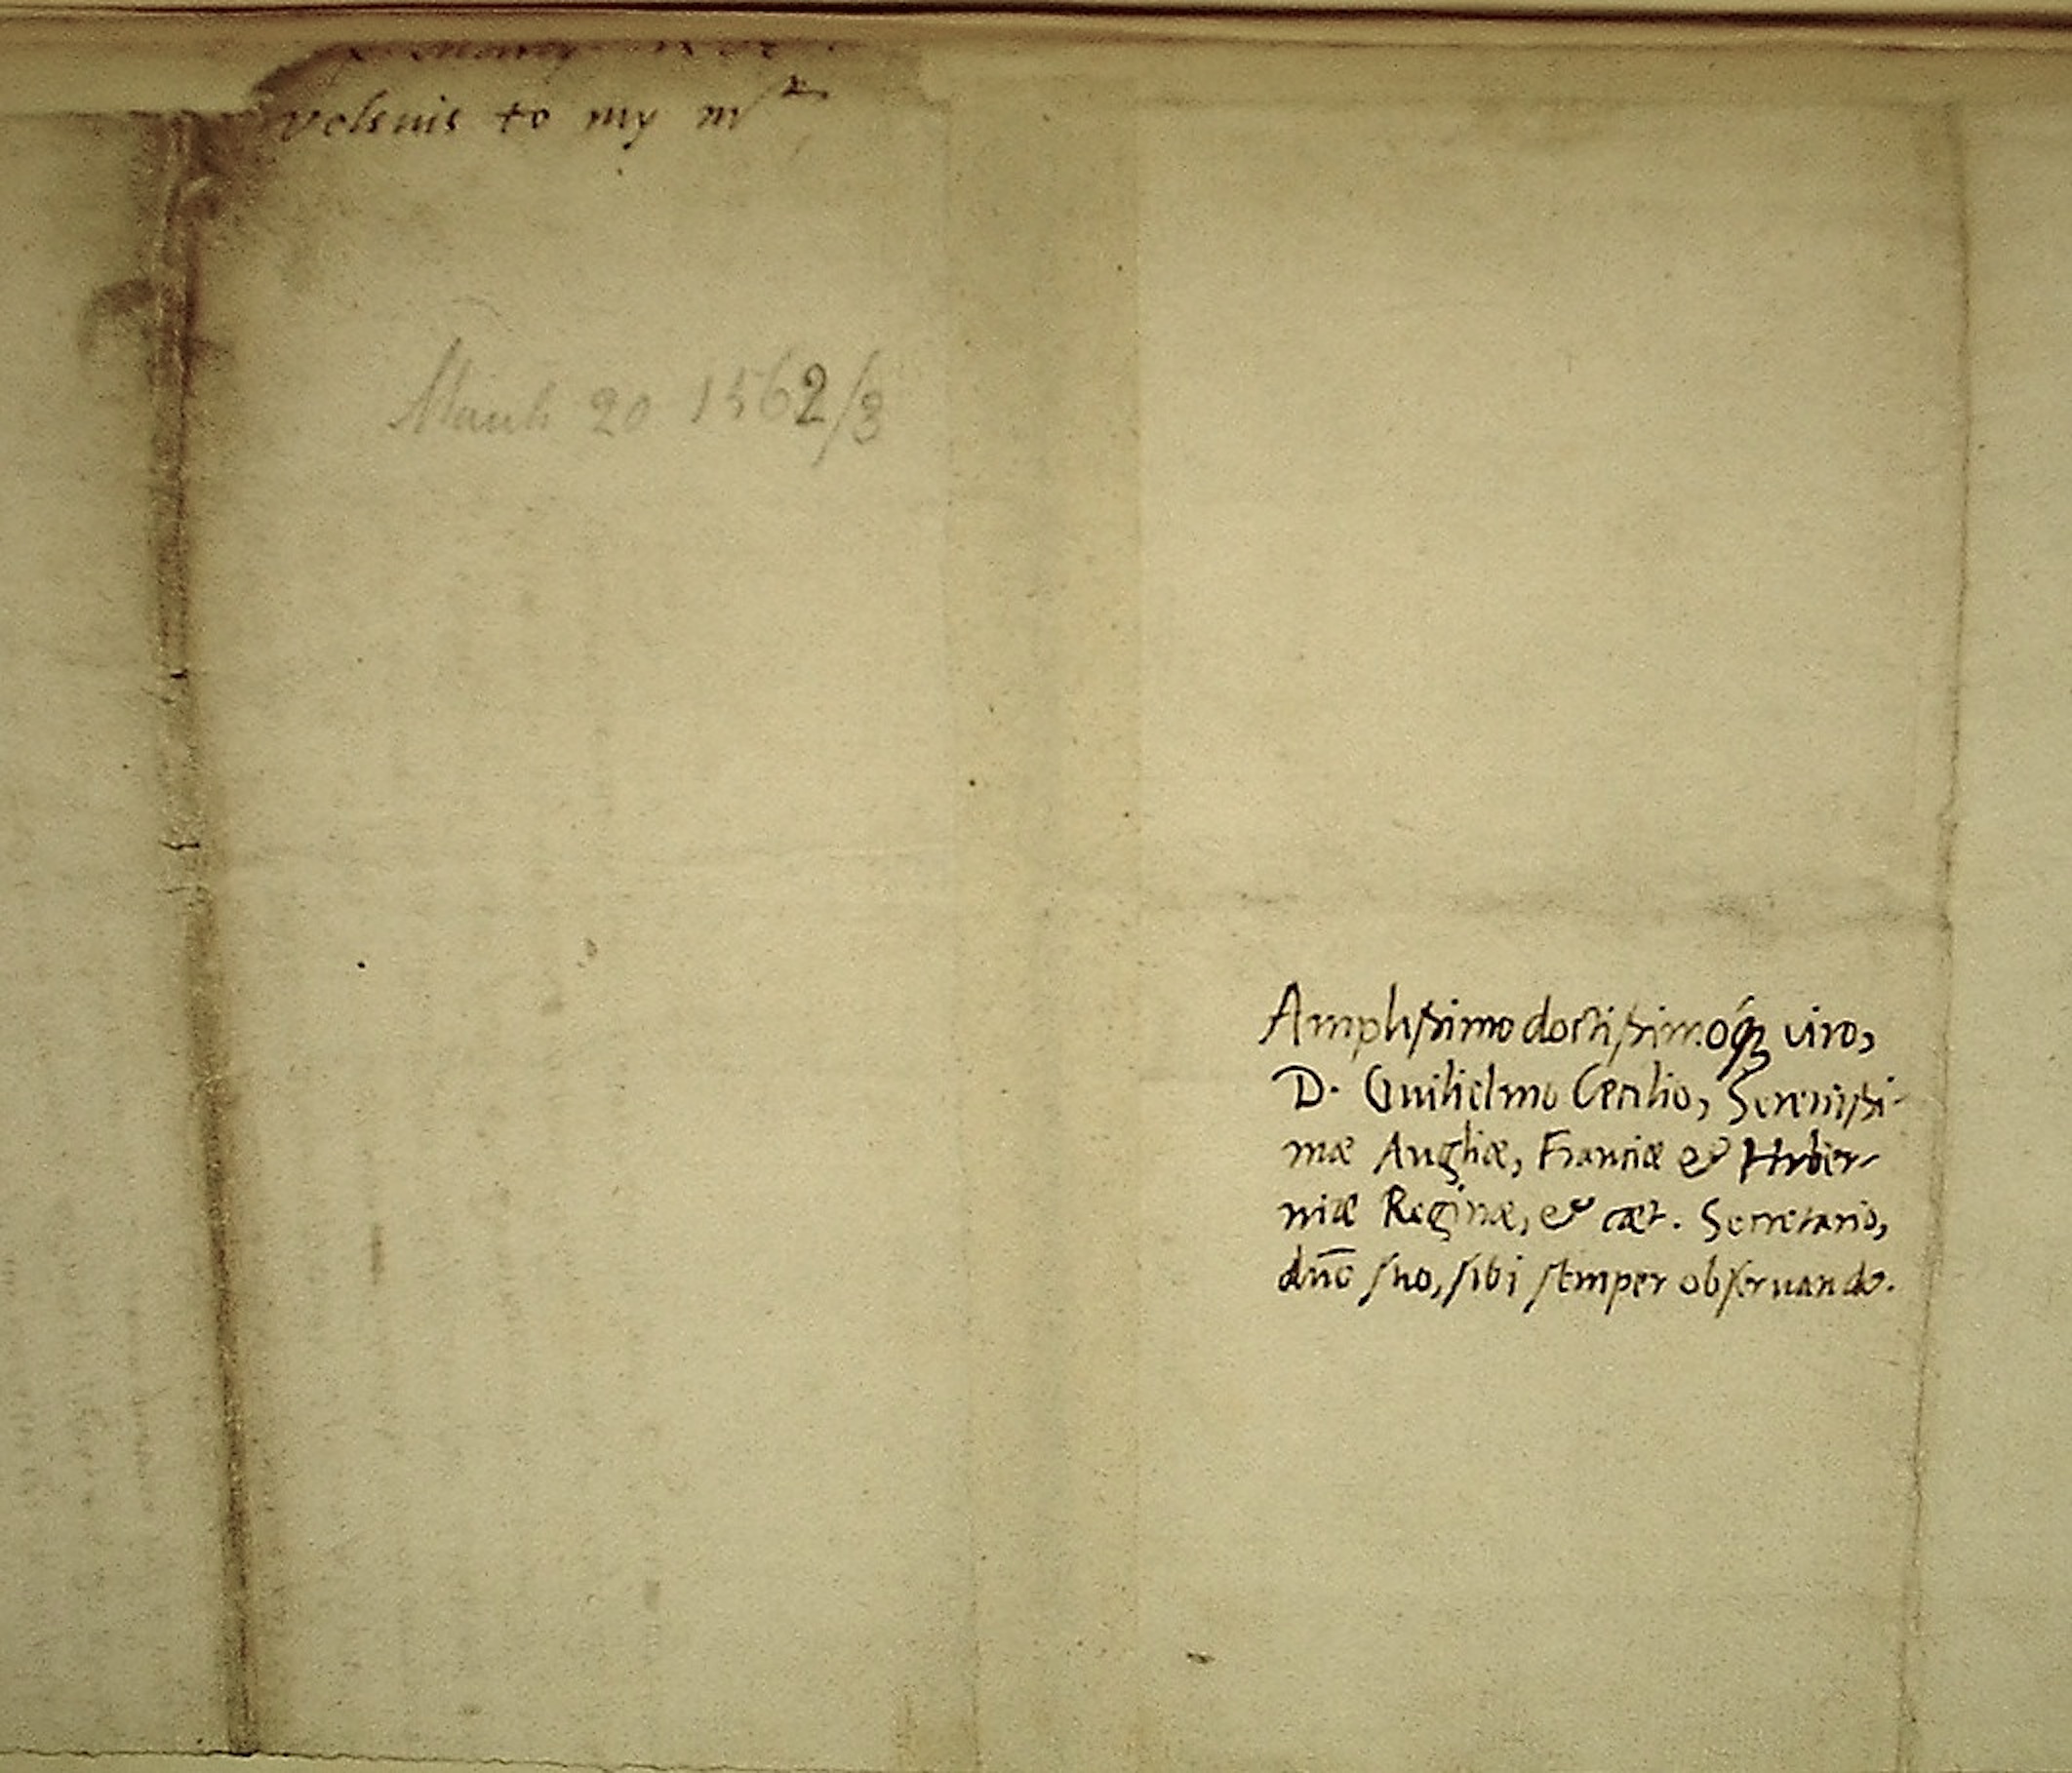 velsius to my mr
March 20 1562/3
Amplissimo doctissimoq́ꝫ viro,
D. Guilielmo Cecilio, Serenissi-
mæ Angliæ, Franciæ & Hyber-
niæ Reginæ, & cæt. Secretario,
dn̄o suo, sibi semper obseruando.